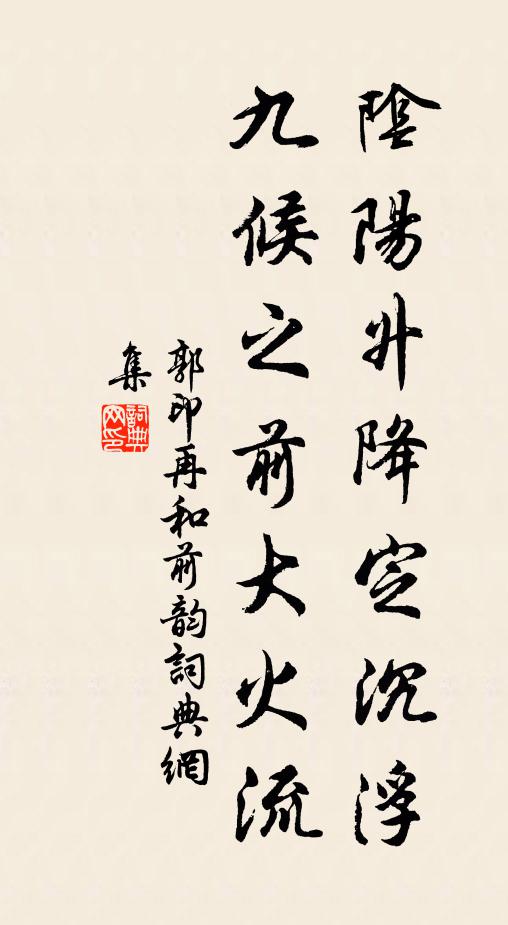 陰陽升降定沉浮
九候之前大火流
郭印再和前韵詞典網
集
詞典網印